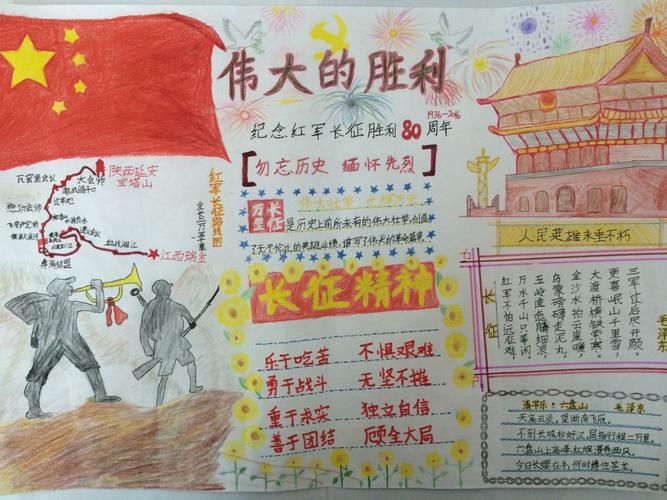 伟大的胜利
1936-2016
纪念红军长征胜利80周年
【勿忘历史 缅怀先烈】
万里长征
是历史上前所未有的伟大壮举,创造
了无于伦比的英雄业绩,谱写了伟大的革命篇章。
长征精神
乐于吃苦 不惧艰难
勇于战斗 无坚不摧
重于求实 独立自信
善于团结 顾全大局
红军长征路线图
全长二万五千里
陕西延安
宝塔山
瓦窑堡会议
大会师
激战腊子口
过草地
懋功会师
血战湘江
江西瑞金
彝海结盟
人民英雄永垂不朽
长征
红军不怕远征难,
万水千山只等闲。
五岭逶迤腾细浪,
乌蒙磅礴走泥丸。
金沙水拍云崖暖,
大渡桥横铁索寒。
更喜岷山千里雪,
三军过后尽开颜。
毛泽东
清平乐·六盘山 毛泽东
天高云淡,望断南飞雁。
不到长城非好汉,屈指行程二万里。
六盘山上高峰,红旗漫卷西风。
今日长缨在手,何时缚住苍龙。